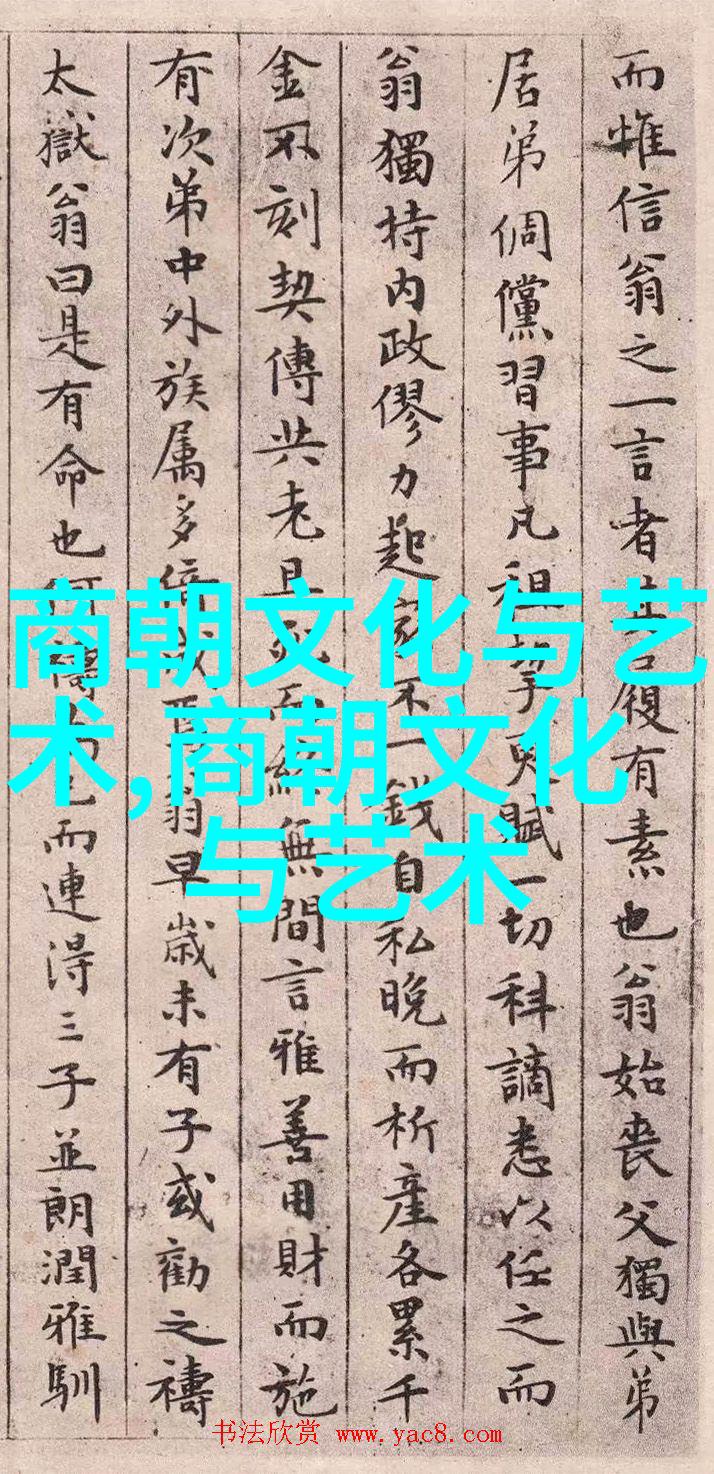 而惟信翁之一言者其履有素也翁始喪父獨與弟
居弟倜儻習事凡租挈更賦一切科謫悉以任之而
翁獨持内政僇力起家不一錢自私晚而析產各累千
金不刻契傳共老且死而終無間言雅善用財而施
有次弟中外族属多倚翁早歳未有子或勸之禱
太嶽翁曰是有命也何禱而連得三子並朗潤雅馴
商朝文化与艺
术,商朝文化
与艺术
书法欣赏 www.yac8.com